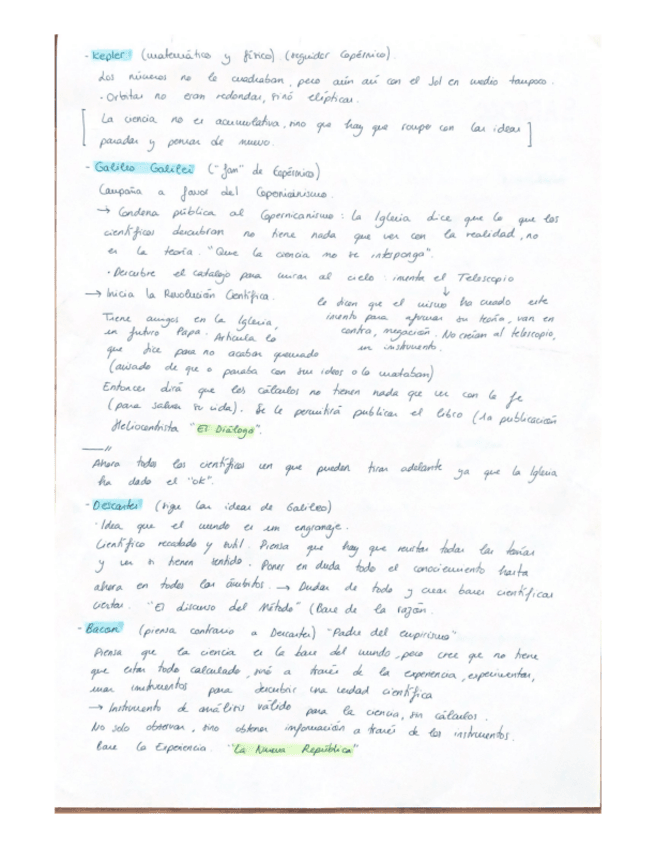 - Kepler: (matemático y físico) (seguidor Copérnico).
Los números no le cuadraban, pero aún así con el Sol en medio tampoco.
· Orbitas no eran redondas, sinó elípticas.
[ La ciencia no es acumulativa, sino que hay que romper con las ideas ]
pasadas y pensar de nuevo.
- Galileo Galilei ("fan" de Copérnico)
Campaña a favor del Copernicanismo.
→ Condena pública al Copernicanismo: la Iglesia dice que lo que los
científicos descubran no tiene nada que ver con la realidad, no
es la teoría. "Que la ciencia no se interponga".
· Descubre el catalejo para mirar al cielo: inventa el Telescopio
→ Inicia la Revolución Científica.
↓
le dicen que el mismo ha creado este
invento para afirmar su teoría, van en
contra, negación. No creían al telescopio,
un instrumento.
Tiene amigos en la Iglesia,
un futuro Papa. Articula lo
que dice para no acabar quemado
(avisado de que o paraba con sus ideas o lo mataban)
Entonces dirá que los cálculos no tienen nada que ver con la fe
(para salvar su vida). Se le permitirá publicar el libro (1a publicación
Heliocentrista "El Diálogo".
Ahora todos los científicos ven que pueden tirar adelante ya que la Iglesia
ha dado el "ok".
- Descartes (sigue las ideas de Galileo)
· Idea que el mundo es un engranaje.
Científico recatado y sutil. Piensa que hay que revisar todas las teorías
y ver si tienen sentido. Poner en duda todo el conocimiento hasta
ahora en todos los ámbitos. → Dudar de todo y crear bases científicas
ciertas. "El discurso del Método" (Base de la razón.
- Bacon (piensa contrario a Descartes) "Padre del empirismo"
Piensa que la ciencia es la base del mundo, pero cree que no tiene
que estar todo calculado, sinó a través de la experiencia, experimentar,
usar instrumentos para descubrir una verdad científica
→ Instrumento de análisis válido para la ciencia, sin cálculos.
No solo observar, sino obtener información a través de los instrumentos.
Base la Experiencia. "La Nueva República"